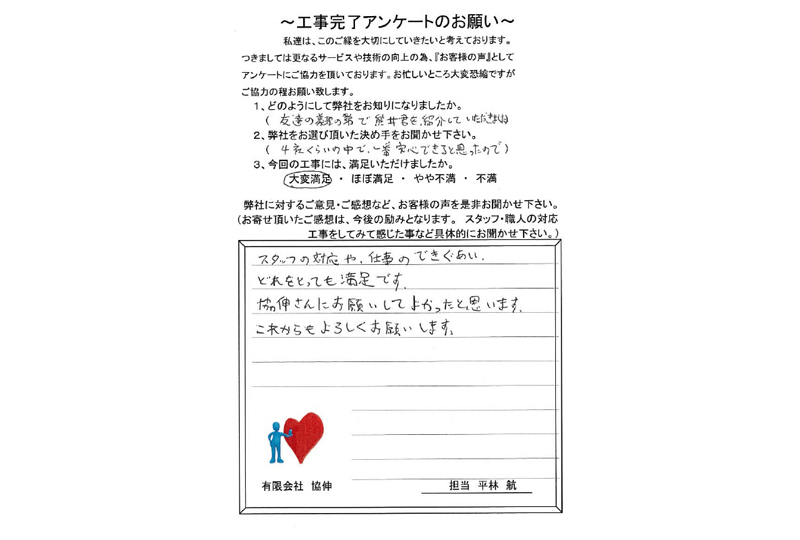 ～工事完了アンケートのお願い～
私達は、このご縁を大切にしていきたいと考えております。
つきましては更なるサービスや技術の向上の為、『お客様の声』として
アンケートにご協力を頂いております。お忙しいところ大変恐縮ですが
ご協力の程お願い致します。
1、どのようにして弊社をお知りになりましたか。
( 友達の義理の弟で 君を紹介していただきました)
2、弊社をお選び頂いた決め手をお聞かせ下さい。
( 4社くらいの中で、一番安心できると思ったので )
3、今回の工事には、満足いただけましたか。
大変満足 ・ ほぼ満足 ・ やや不満 ・ 不満
弊社に対するご意見・ご感想など、お客様の声を是非お聞かせ下さい。
(お寄せ頂いたご感想は、今後の励みとなります。 スタッフ・職人の対応
工事をしてみて感じた事など具体的にお聞かせ下さい。)
スタッフの対応や、仕事のできぐあい、
どれをとっても満足です。
協伸さんにお願いしてよかったと思います。
これからもよろしくお願いします。
有限会社 協伸
担当 平林 航